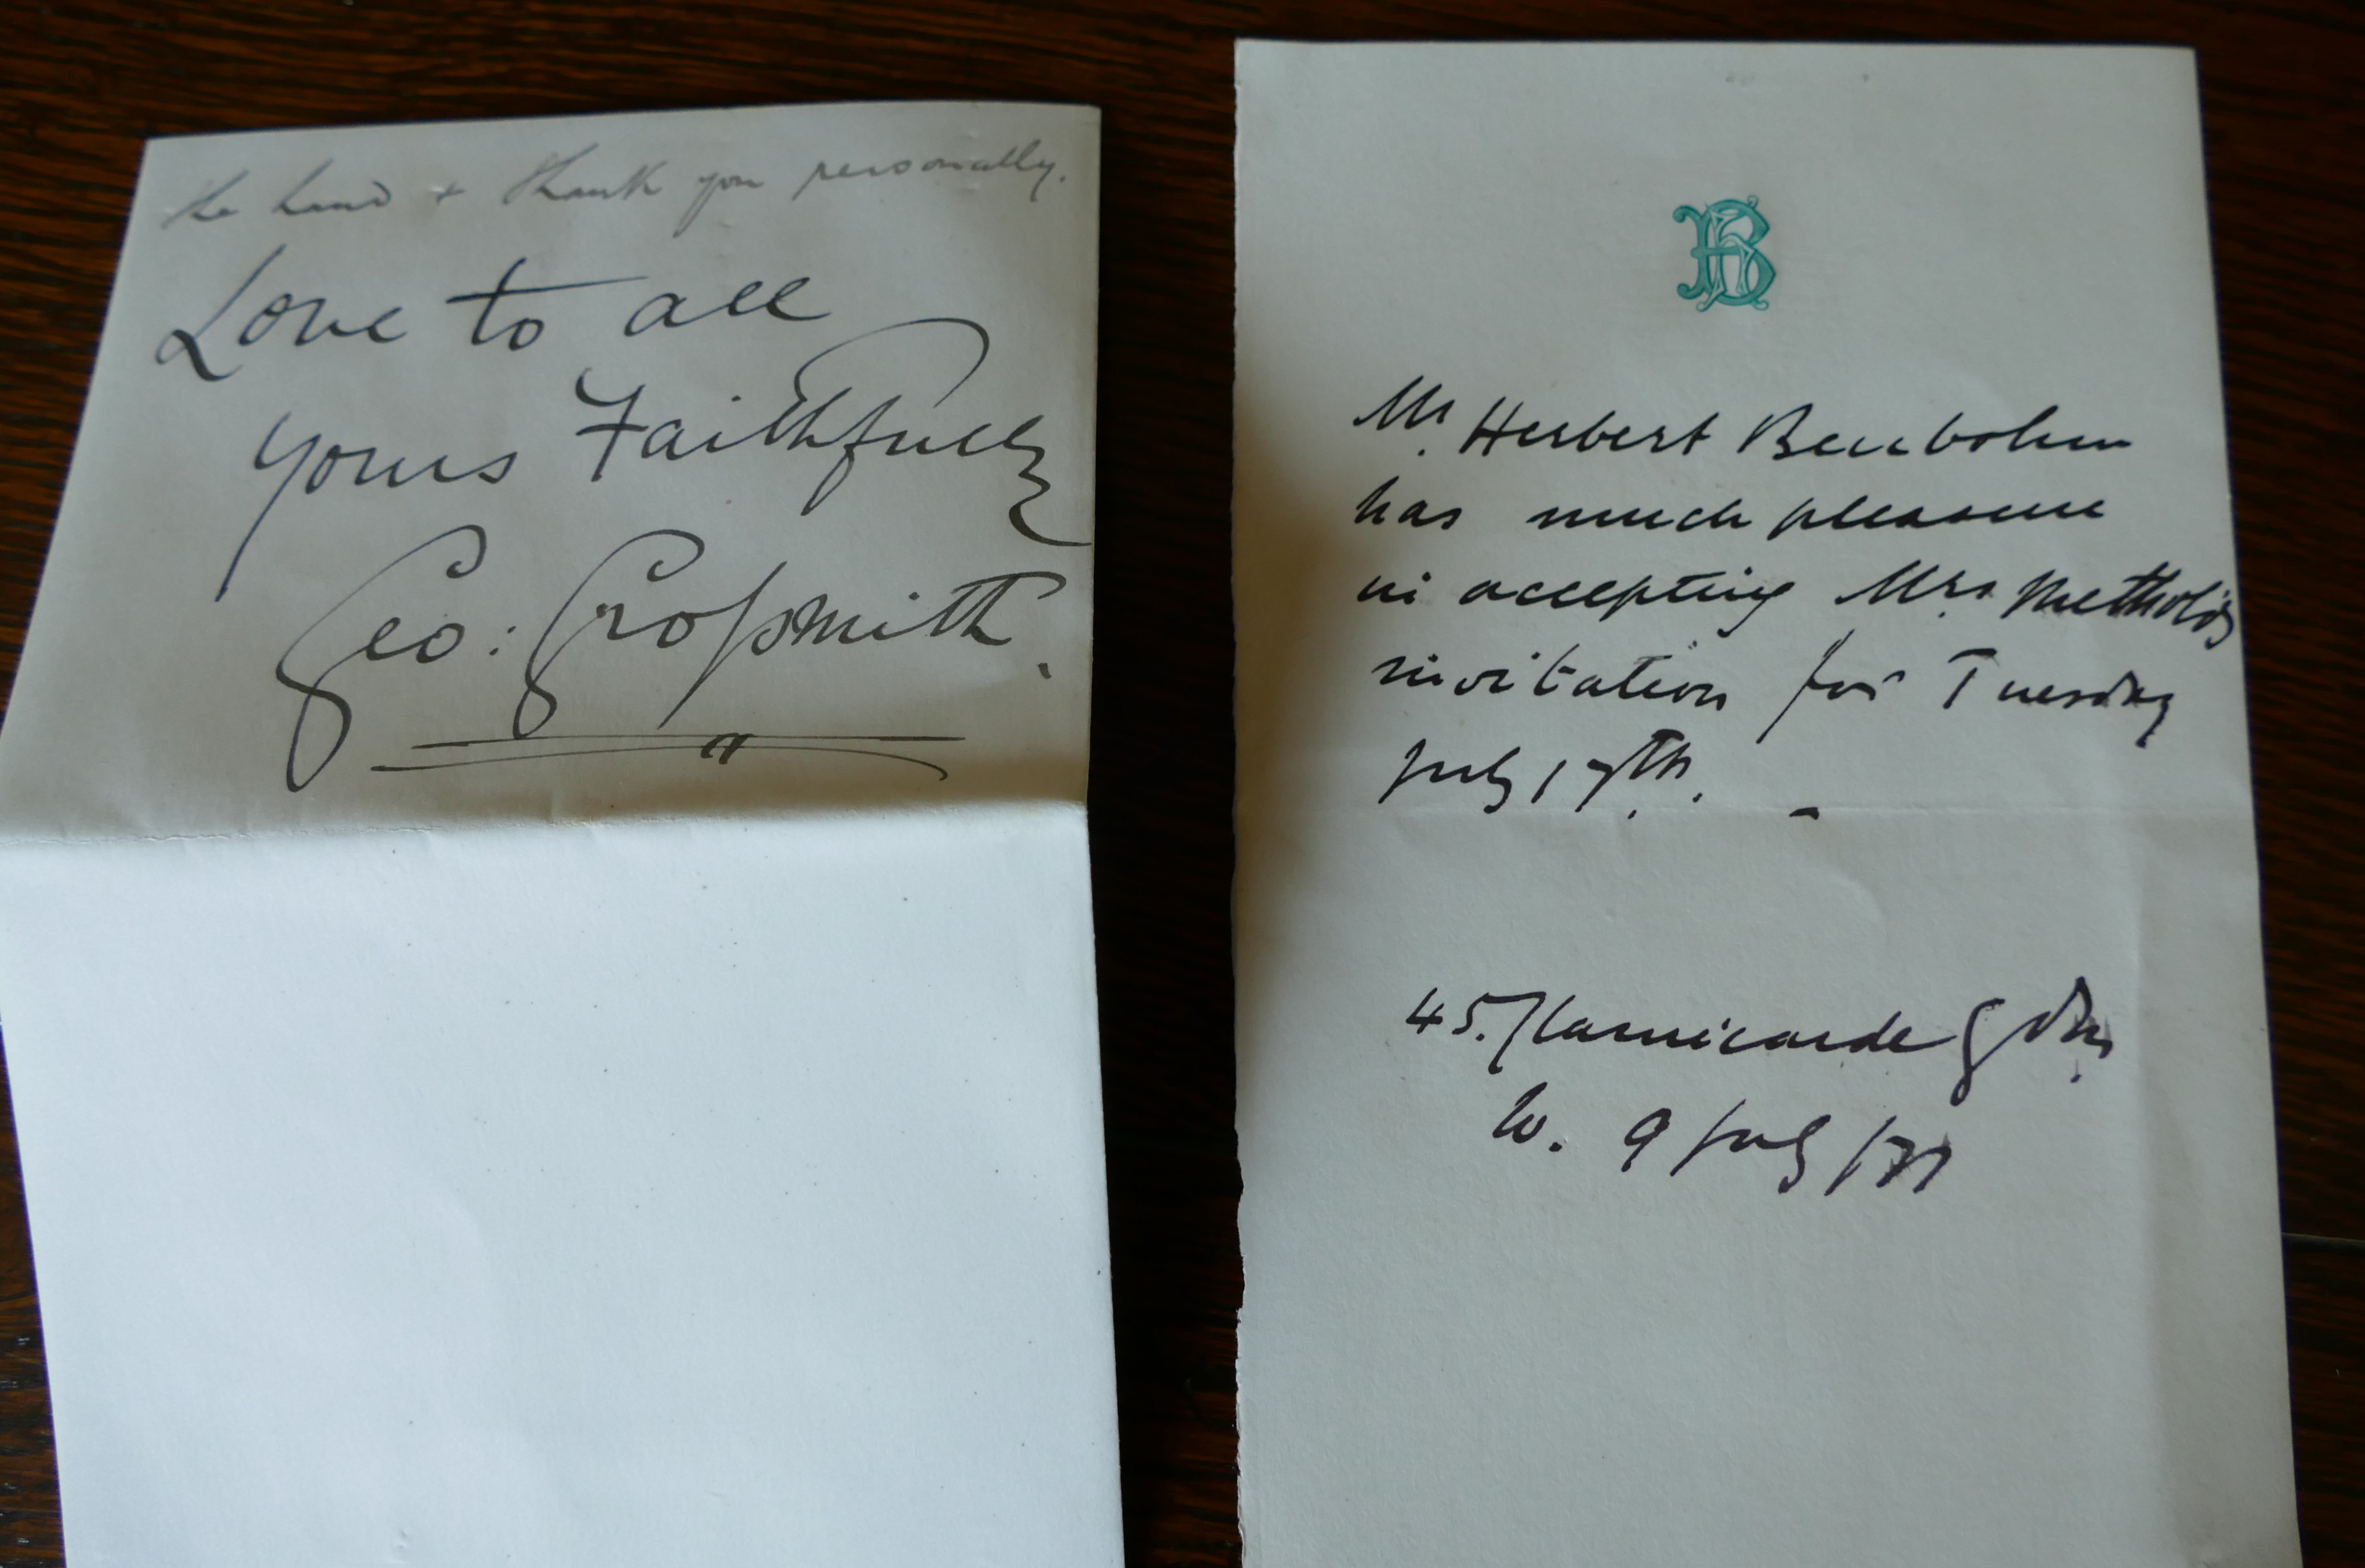 the hand + thank you personally.
Love to all
yours Faithfully
Geo: Grossmith.
HB
Mr. Herbert Beerbohm
has much pleasure
in accepting Mrs. Methold's
invitation for Tuesday
July 17th.
45. Clanricarde Gdns.
W. 9 July /77